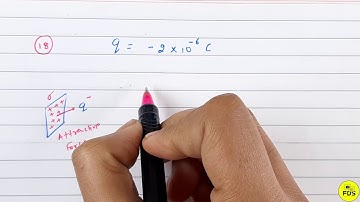 18
q = - 2 × 10⁻⁶ C
σ
q⁻
Attraction
FDS